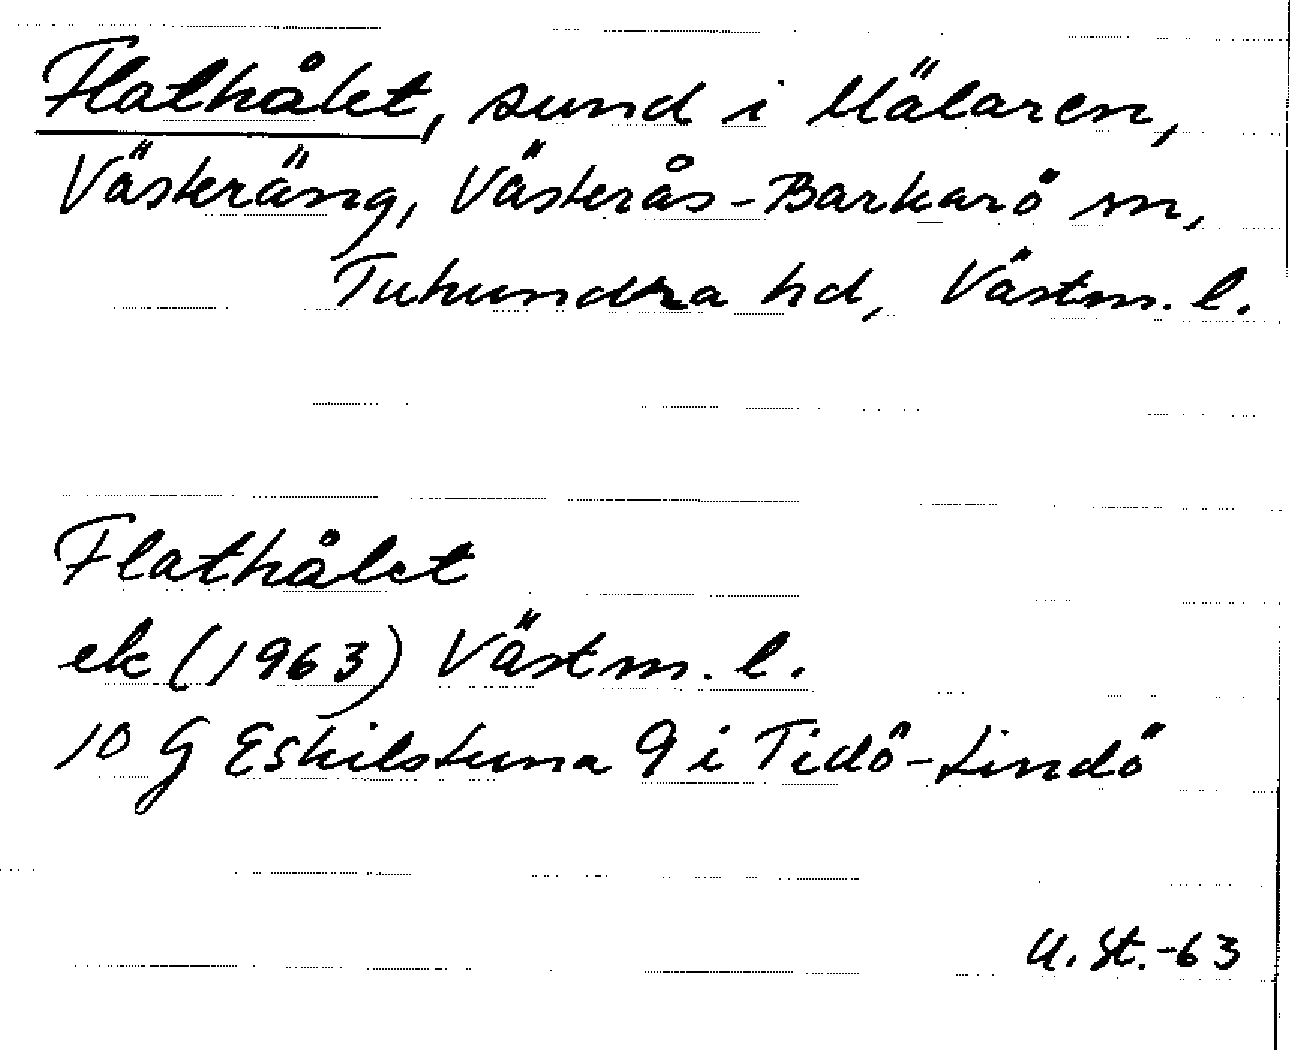 Flathålet, sund i Mälaren,
Västeräng, Västerås-Barkarö sn,
Tuhundra hd, Västm. l.
Flathålet
ek (1963) Västm. l.
10 G Eskilstuna 9 i Tidö-Lindö
U. St. -63